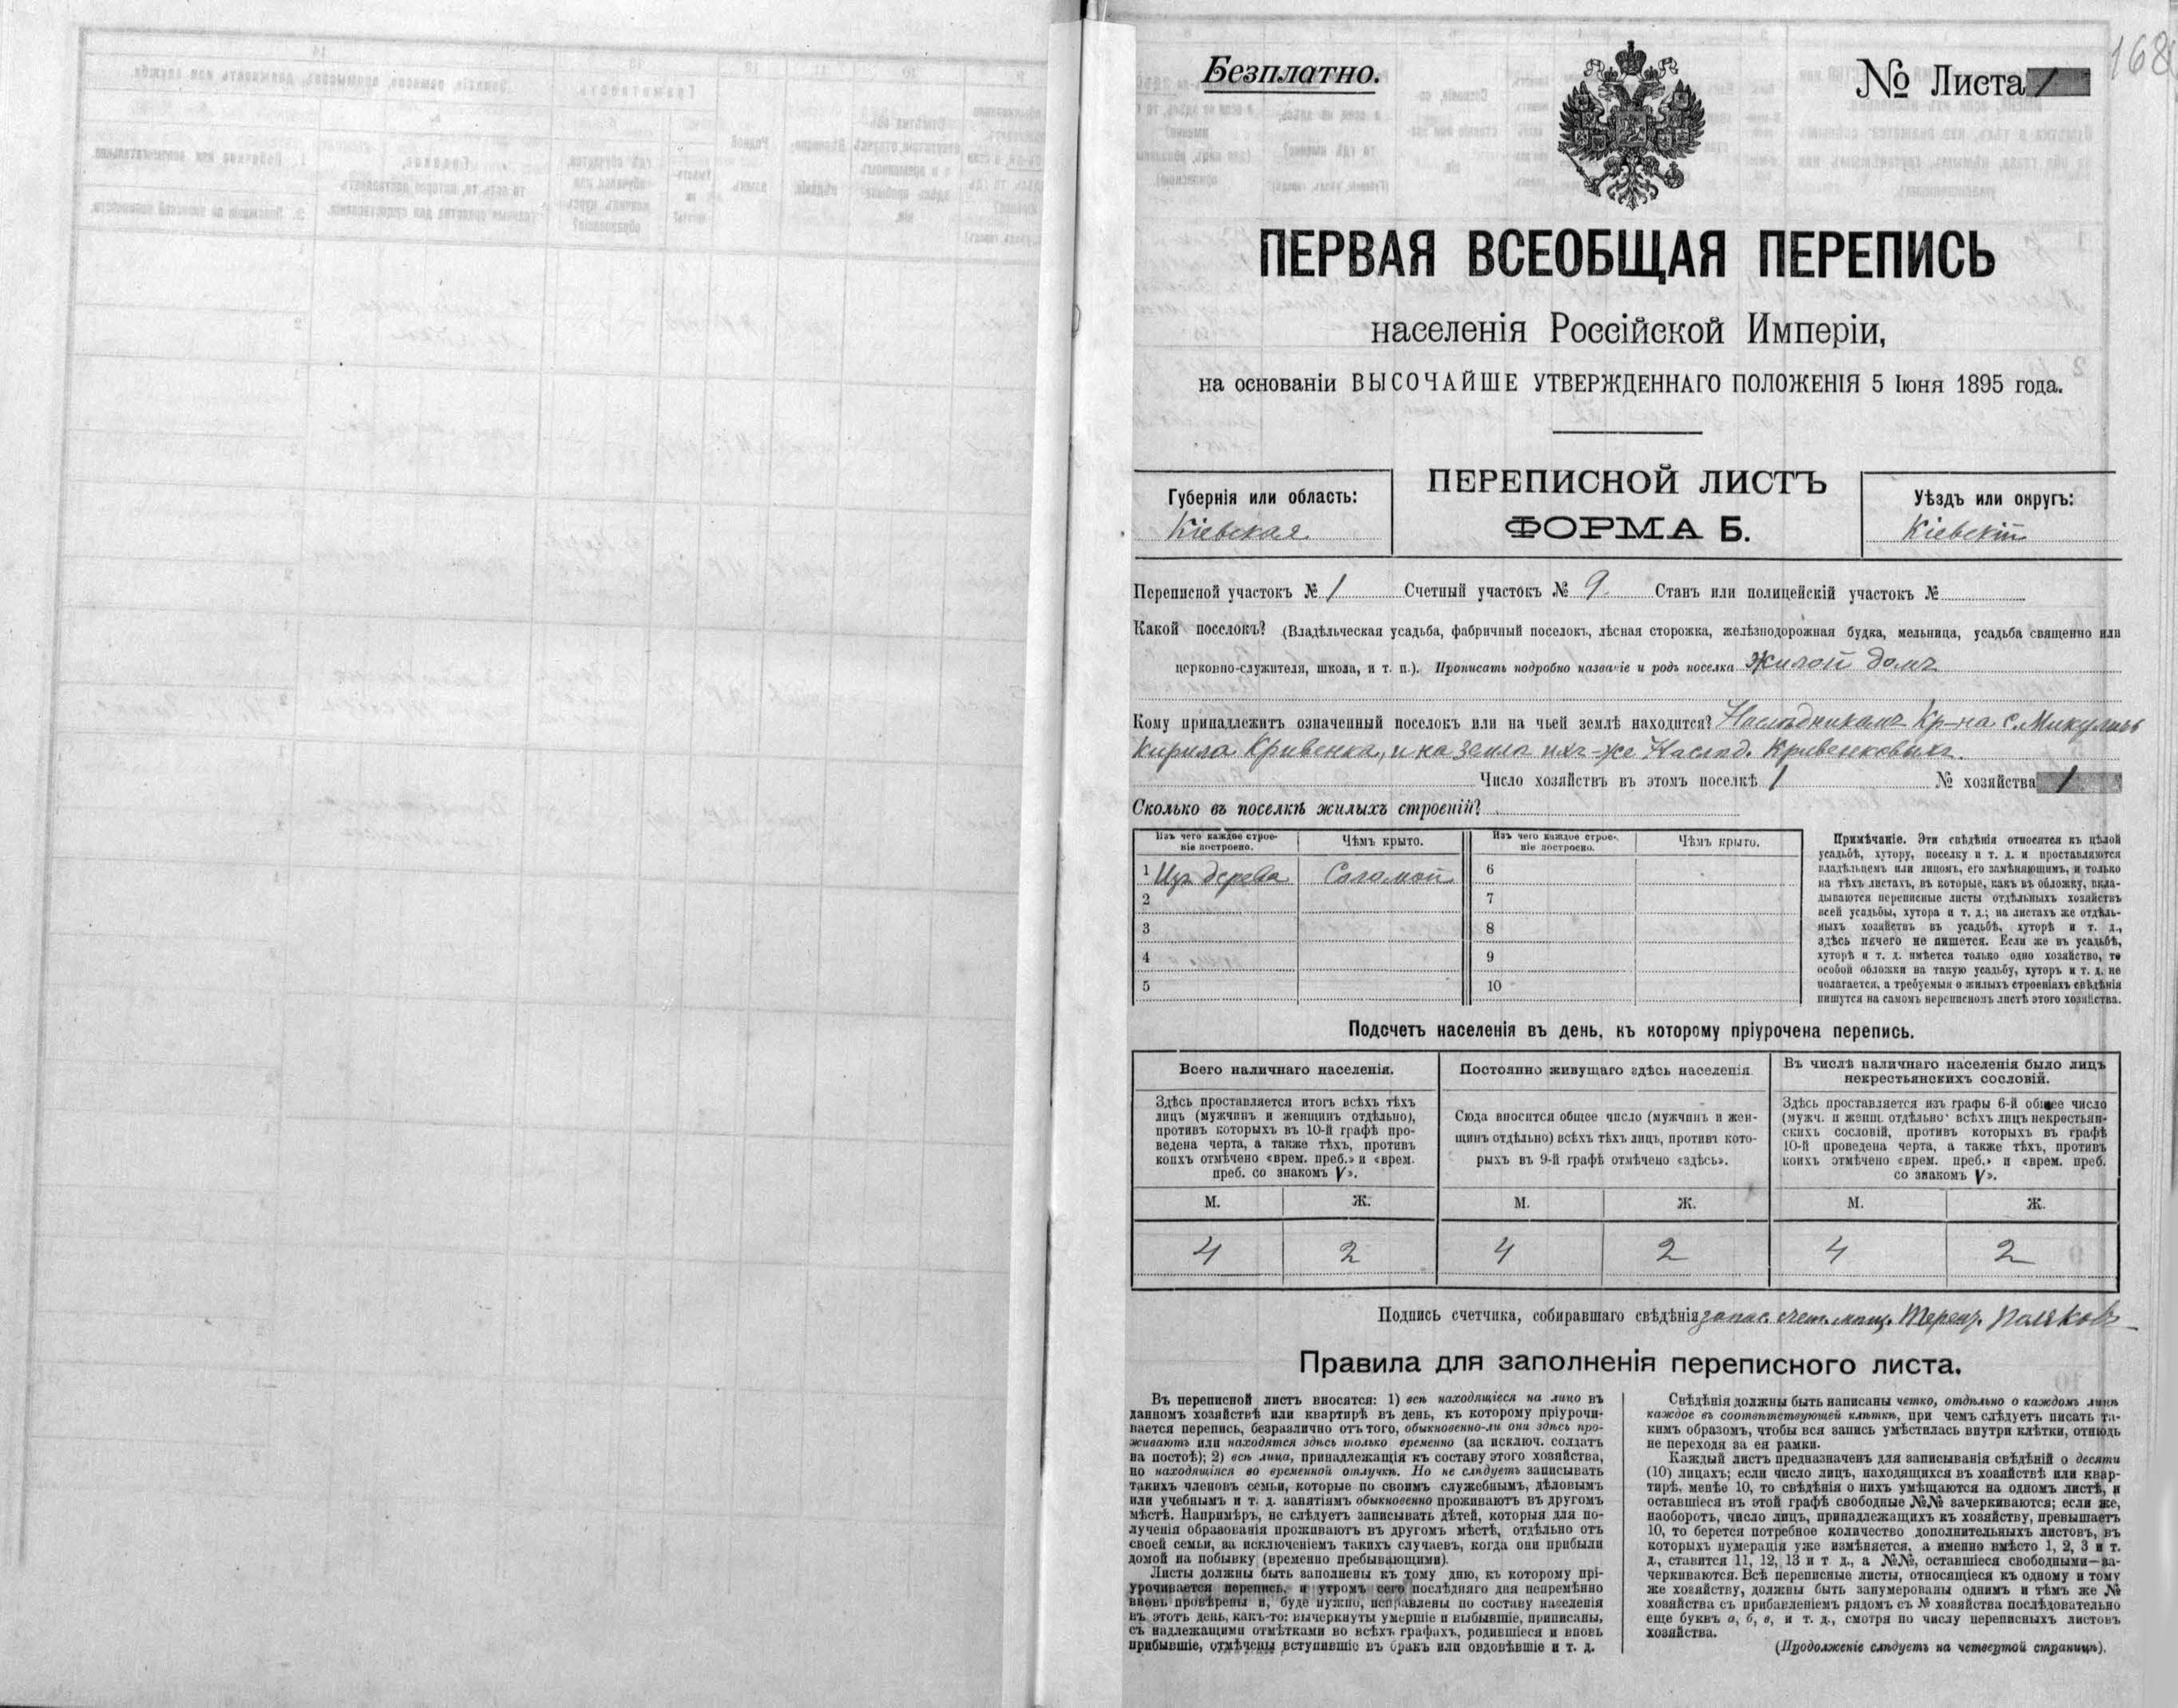 168
Безплатно.
№ Листа 1
ПЕРВАЯ ВСЕОБЩАЯ ПЕРЕПИСЬ
населенія Россійской Имперіи,
на основаніи ВЫСОЧАЙШЕ УТВЕРЖДЕННАГО ПОЛОЖЕНІЯ 5 Іюня 1895 года.
Губернія или область:
Кіевская
ПЕРЕПИСНОЙ ЛИСТЪ
ФОРМА Б.
Уѣздъ или округъ:
Кіевскій
Переписной участокъ № 1 Счетный участокъ № 9. Станъ или полицейскій участокъ №
Какой поселокъ? (Владѣльческая усадьба, фабричный поселокъ, лѣсная сторожка, желѣзнодорожная будка, мельница, усадьба священно или
церковно-служителя, школа, и т. п.). Прописать подробно названіе и родъ поселка Жилой домъ
Кому принадлежитъ означенный поселокъ или на чьей землѣ находится? Наслѣдникамъ Кр-на с. Микуличъ
Кирила Кривенка, и на земла ихъ-же Наслѣд. Кривенковыхъ.
Число хозяйствъ въ этомъ поселкѣ 1 № хозяйства 1
Сколько въ поселкѣ жилыхъ строеній?
Изъ чего каждое строе-
ніе построено.
Чѣмъ крыто.
Изъ чего каждое строе-
ніе построено.
Чѣмъ крыто.
1 Изъ дерева Соломой 6
2 7
3 8
4 9
5 10
Примѣчаніе. Эти свѣдѣнія относятся къ цѣлой
усадьбѣ, хутору, поселку и т. д. и проставляются
владѣльцемъ или лицомъ, его замѣняющимъ, и только
на тѣхъ листахъ, въ которые, какъ въ обложку, вкла-
дываются переписные листы отдѣльныхъ хозяйствъ
всей усадьбы, хутора и т. д.; на листахъ же отдѣль-
ныхъ хозяйствъ въ усадьбѣ, хуторѣ и т. д.,
здѣсь ничего не пишется. Если же въ усадьбѣ,
хуторѣ и т. д. имѣется только одно хозяйство, то
особой обложки на такую усадьбу, хуторъ и т. д. не
полагается, а требуемыя о жилыхъ строеніяхъ свѣдѣнія
пишутся на самомъ переписномъ листѣ этого хозяйства.
Подсчетъ населенія въ день, къ которому пріурочена перепись.
Всего наличнаго населенія.
Здѣсь проставляется итогъ всѣхъ тѣхъ
лицъ (мужчинъ и женщинъ отдѣльно),
противъ которыхъ въ 10-й графѣ про-
ведена черта, а также тѣхъ, противъ
коихъ отмѣчено «врем. преб.» и «врем.
преб. со знакомъ V».
Постоянно живущаго здѣсь населенія
Сюда вносится общее число (мужчинъ и жен-
щинъ отдѣльно) всѣхъ тѣхъ лицъ, противъ кото-
рыхъ въ 9-й графѣ отмѣчено «здѣсь».
Въ числѣ наличнаго населенія было лицъ
некрестьянскихъ сословій.
Здѣсь проставляется изъ графы 6-й общее число
(мужч. и женщ. отдѣльно) всѣхъ лицъ некрестьян-
скихъ сословій, противъ которыхъ въ графѣ
10-й проведена черта, а также тѣхъ, противъ
коихъ отмѣчено «врем. преб.» и «врем. преб.
со знакомъ V».
М. Ж. М. Ж. М. Ж.
4 2 4 2 4 2
Подпись счетчика, собиравшаго свѣдѣнія запас. счет. Поляковъ
Правила для заполненія переписного листа.
Въ переписной листъ вносятся: 1) всѣ находящіеся на лицо въ
данномъ хозяйствѣ или квартирѣ въ день, къ которому пріурочи-
вается перепись, безразлично отъ того, обыкновенно-ли они здѣсь про-
живаютъ или находятся здѣсь только временно (за исключ. солдатъ
на постоѣ); 2) всѣ лица, принадлежащія къ составу этого хозяйства,
но находящіяся во временной отлучкѣ. Но не слѣдуетъ записывать
такихъ членовъ семьи, которые по своимъ служебнымъ, дѣловымъ
или учебнымъ и т. д. занятіямъ обыкновенно проживаютъ въ другомъ
мѣстѣ. Напримѣръ, не слѣдуетъ записывать дѣтей, которыя для по-
лученія образованія проживаютъ въ другомъ мѣстѣ, отдѣльно отъ
своей семьи, за исключеніемъ такихъ случаевъ, когда они прибыли
домой на побывку (временно пребывающими).
Листы должны быть заполнены къ тому дню, къ которому прі-
урочивается перепись, и утромъ сего послѣдняго дня непремѣнно
вновь провѣрены и, буде нужно, исправлены по составу населенія
въ этотъ день, какъ-то: вычеркнуты умершіе и выбывшіе, приписаны,
съ надлежащими отмѣтками во всѣхъ графахъ, родившіеся и вновь
прибывшіе, отмѣчены вступившіе въ бракъ или овдовѣвшіе и т. д.
Свѣдѣнія должны быть написаны четко, отдѣльно о каждомъ лицѣ
каждое въ соотвѣтствующей клѣткѣ, при чемъ слѣдуетъ писать та-
кимъ образомъ, чтобы вся запись умѣстилась внутри клѣтки, отнюдь
не переходя за ея рамки.
Каждый листъ предназначенъ для записыванія свѣдѣній о десяти
(10) лицахъ; если число лицъ, находящихся въ хозяйствѣ или квар-
тирѣ, менѣе 10, то свѣдѣнія о нихъ умѣщаются на одномъ листѣ, и
оставшіеся въ этой графѣ свободные №№ зачеркиваются; если же,
наоборотъ, число лицъ, принадлежащихъ къ хозяйству, превышаетъ
10, то берется потребное количество дополнительныхъ листовъ, въ
которыхъ нумерація уже измѣняется, а именно вмѣсто 1, 2, 3 и т.
д., ставится 11, 12, 13 и т д., а №№, оставшіеся свободными—за-
черкиваются. Всѣ переписные листы, относящіеся къ одному и тому
же хозяйству, должны быть занумерованы однимъ и тѣмъ же №
хозяйства съ прибавленіемъ рядомъ съ № хозяйства послѣдовательно
еще буквъ а, б, в, и т. д., смотря по числу переписныхъ листовъ
хозяйства.
(Продолженіе слѣдуетъ на четвертой страницѣ).